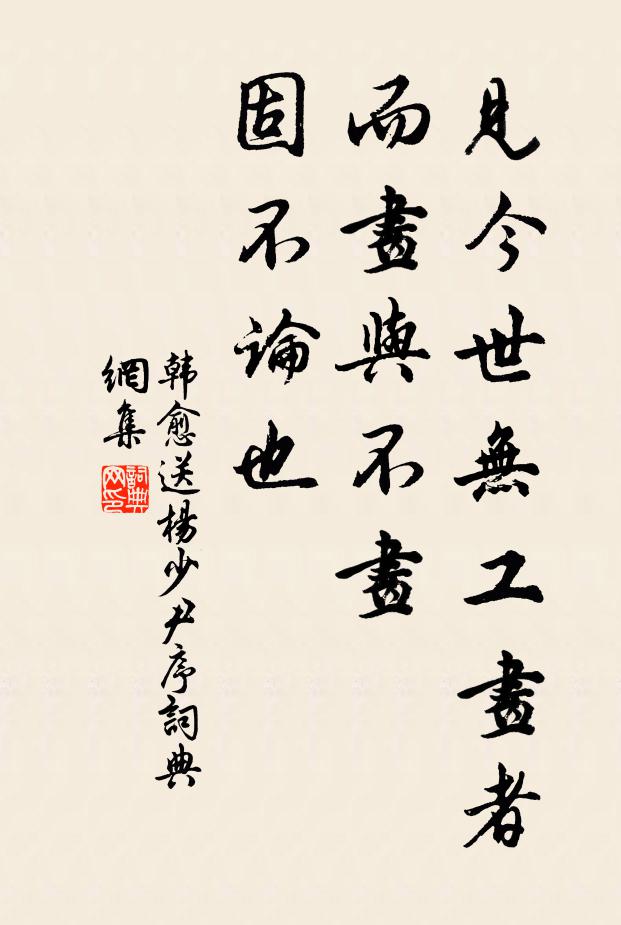 見今世無工畫者
而畫與不畫
固不論也
韩愈送楊少尹序詞典
網集
詞典
网印